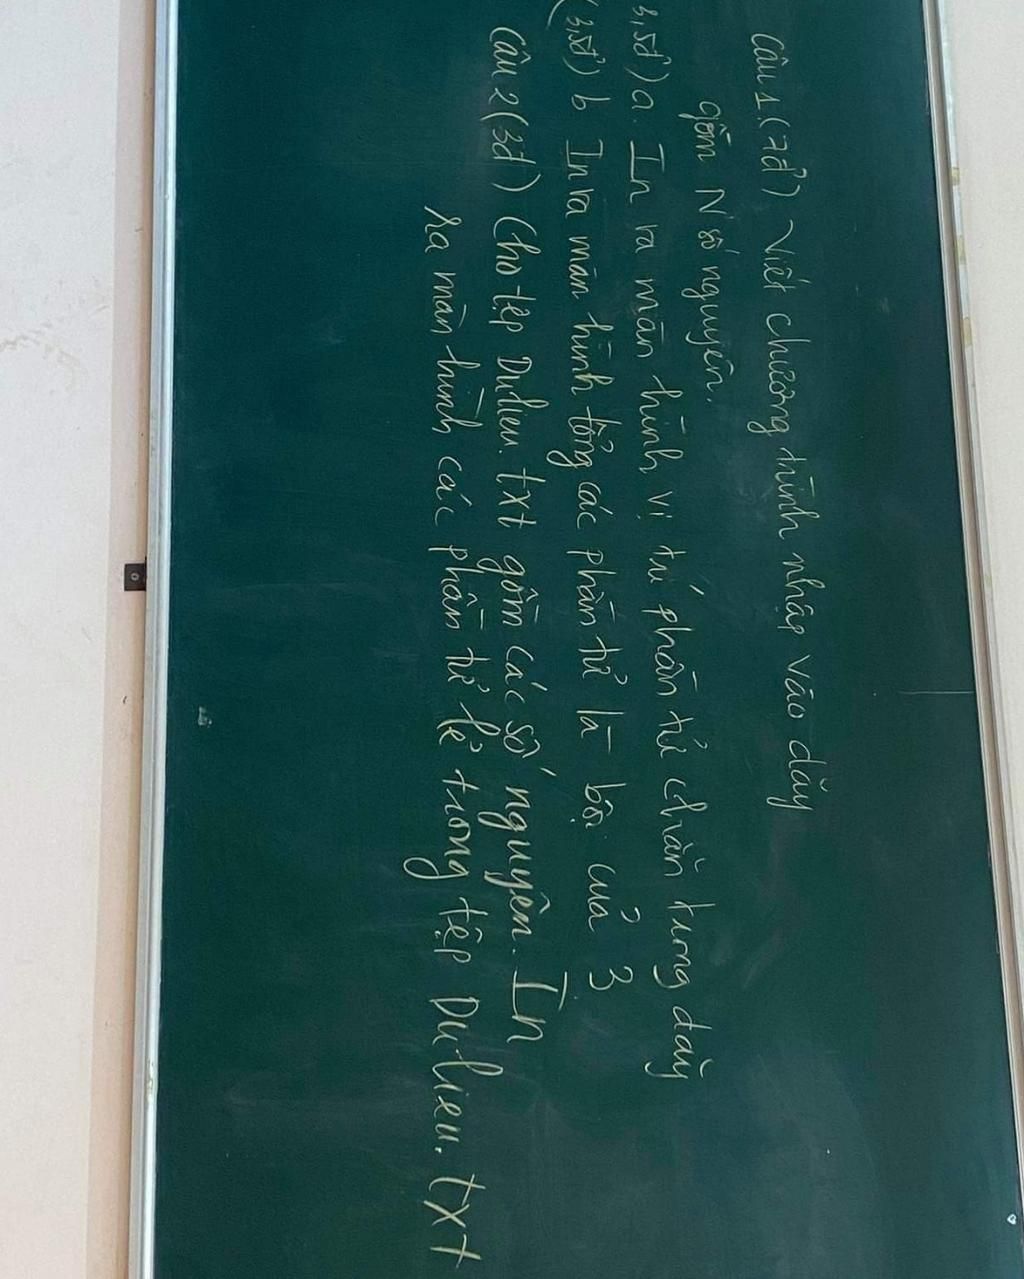 Câu 1. (7đ) Viết chương trình nhập vào dãy
gồm N số nguyên.
3,5đ) a. In ra màn hình vị trí phần tử chẵn trong dãy
(3,5đ) b In ra màn hình tổng các phần tử là bội của 3
Câu 2 (3đ) Cho tệp Dulieu.txt gồm các số nguyên. In
ra màn hình các phần tử lẻ trong tệp Dulieu.txt